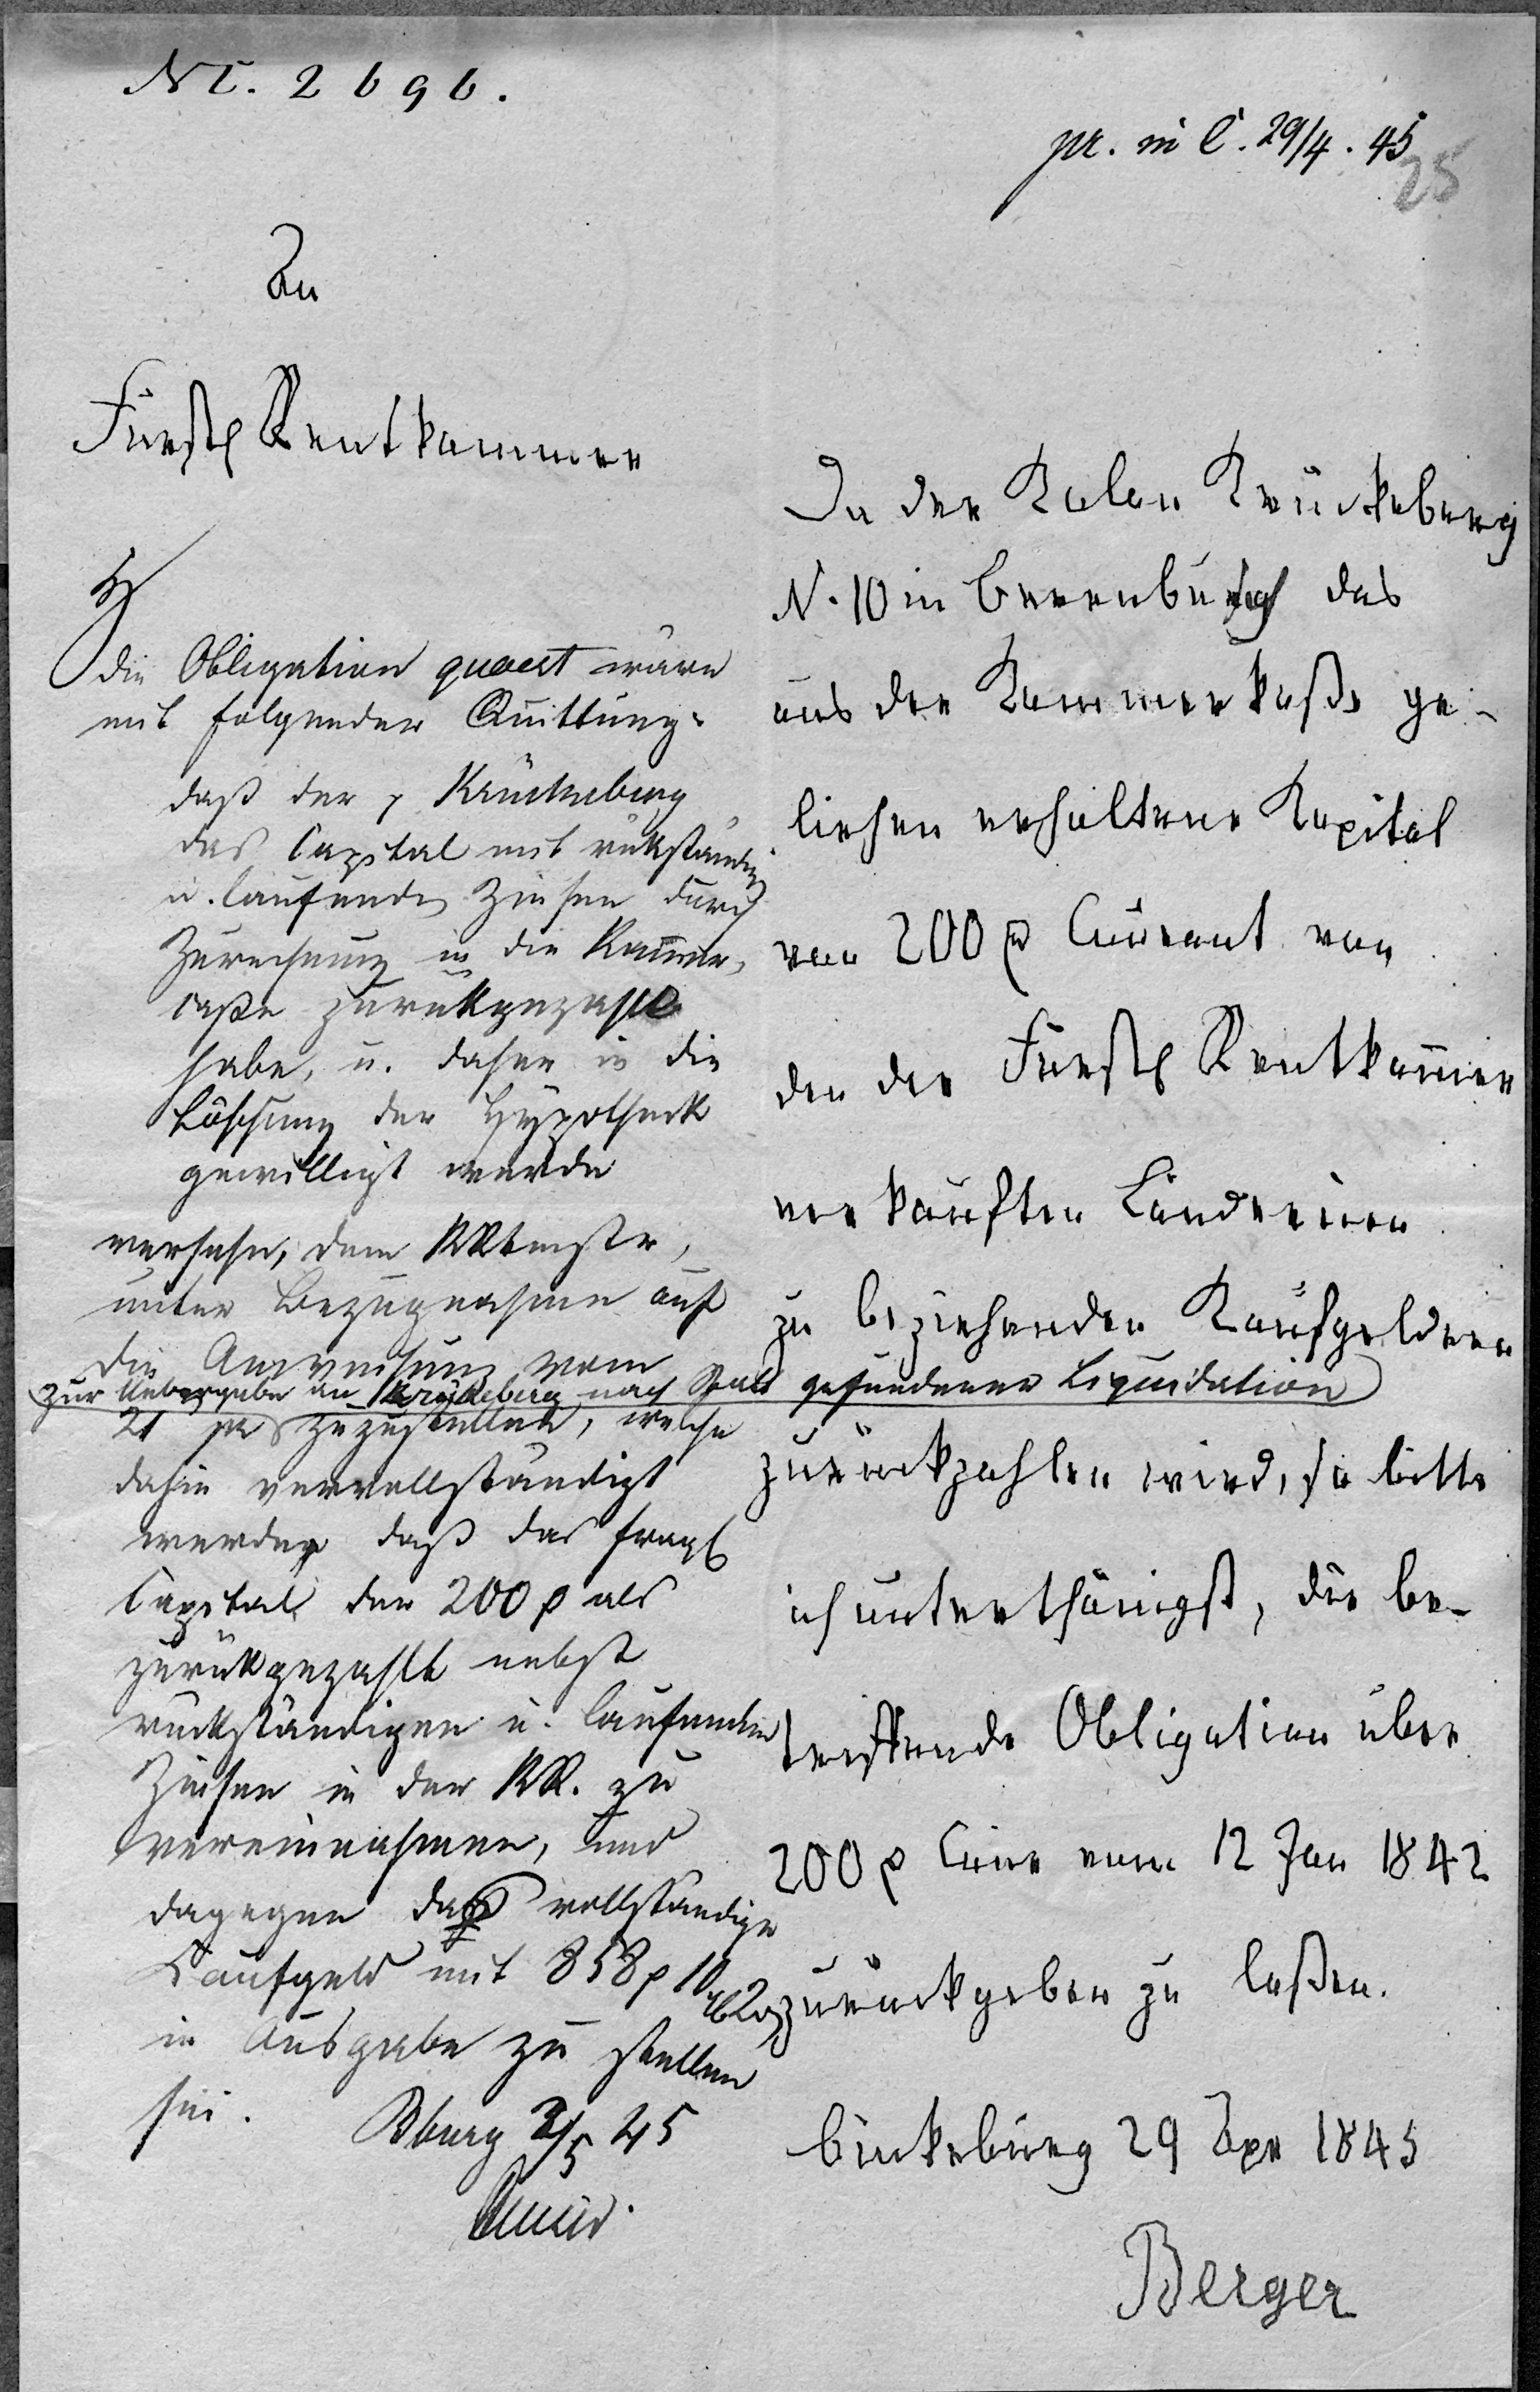 NC. 2696.
pr. in C. 29/4. 45
25
An
Fürstl Rentkammer
Da der Kolon Krückeberg
N. 10 in Berenbusch das
aus der Kammerkaße ge-
liehen erhaltene Kapital
von 200 rp Courant von
den der Fürstl Rentkammer
verkauften Ländereien
zu beziehenden Kaufgeldern
zurückzahlen wird, so bitte
ich unterthänigst, die be-
treffende Obligation über
200 rp Cour vom 12 Jan 1842
zurückgeben zu laßen.
Bückeburg 29 Apr 1845
Berger
die Obligation quaest wäre
mit folgender Quittung:
daß der p Krückeberg
das Capital mit rückständigen
u. laufenden Zinsen durch
Zurechnung in die Kammer-
caße zurückgezahlt
habe, u. daher in die
Löschung der Hypotheck
gewilligt werde
versehn, dem KRtmstr,
unter Bezugnahme auf
die Anweisung vom
zur Uebergabe an Krückeberg nach Statt gefundener Liquidation
21 pr zuzustellen, welche
dahin vervollständigt
werde, daß das fragl
Capital der 200 rp als
zurückgezahlt nebst
rückständigen u. laufenden
Zinsen in der KR. zu
vereinnahmen, und
dagegen das vollständige
Kaufgeld mit 858 rp 10
in Ausgabe zu stellen
sei.
Bburg 2/5 45